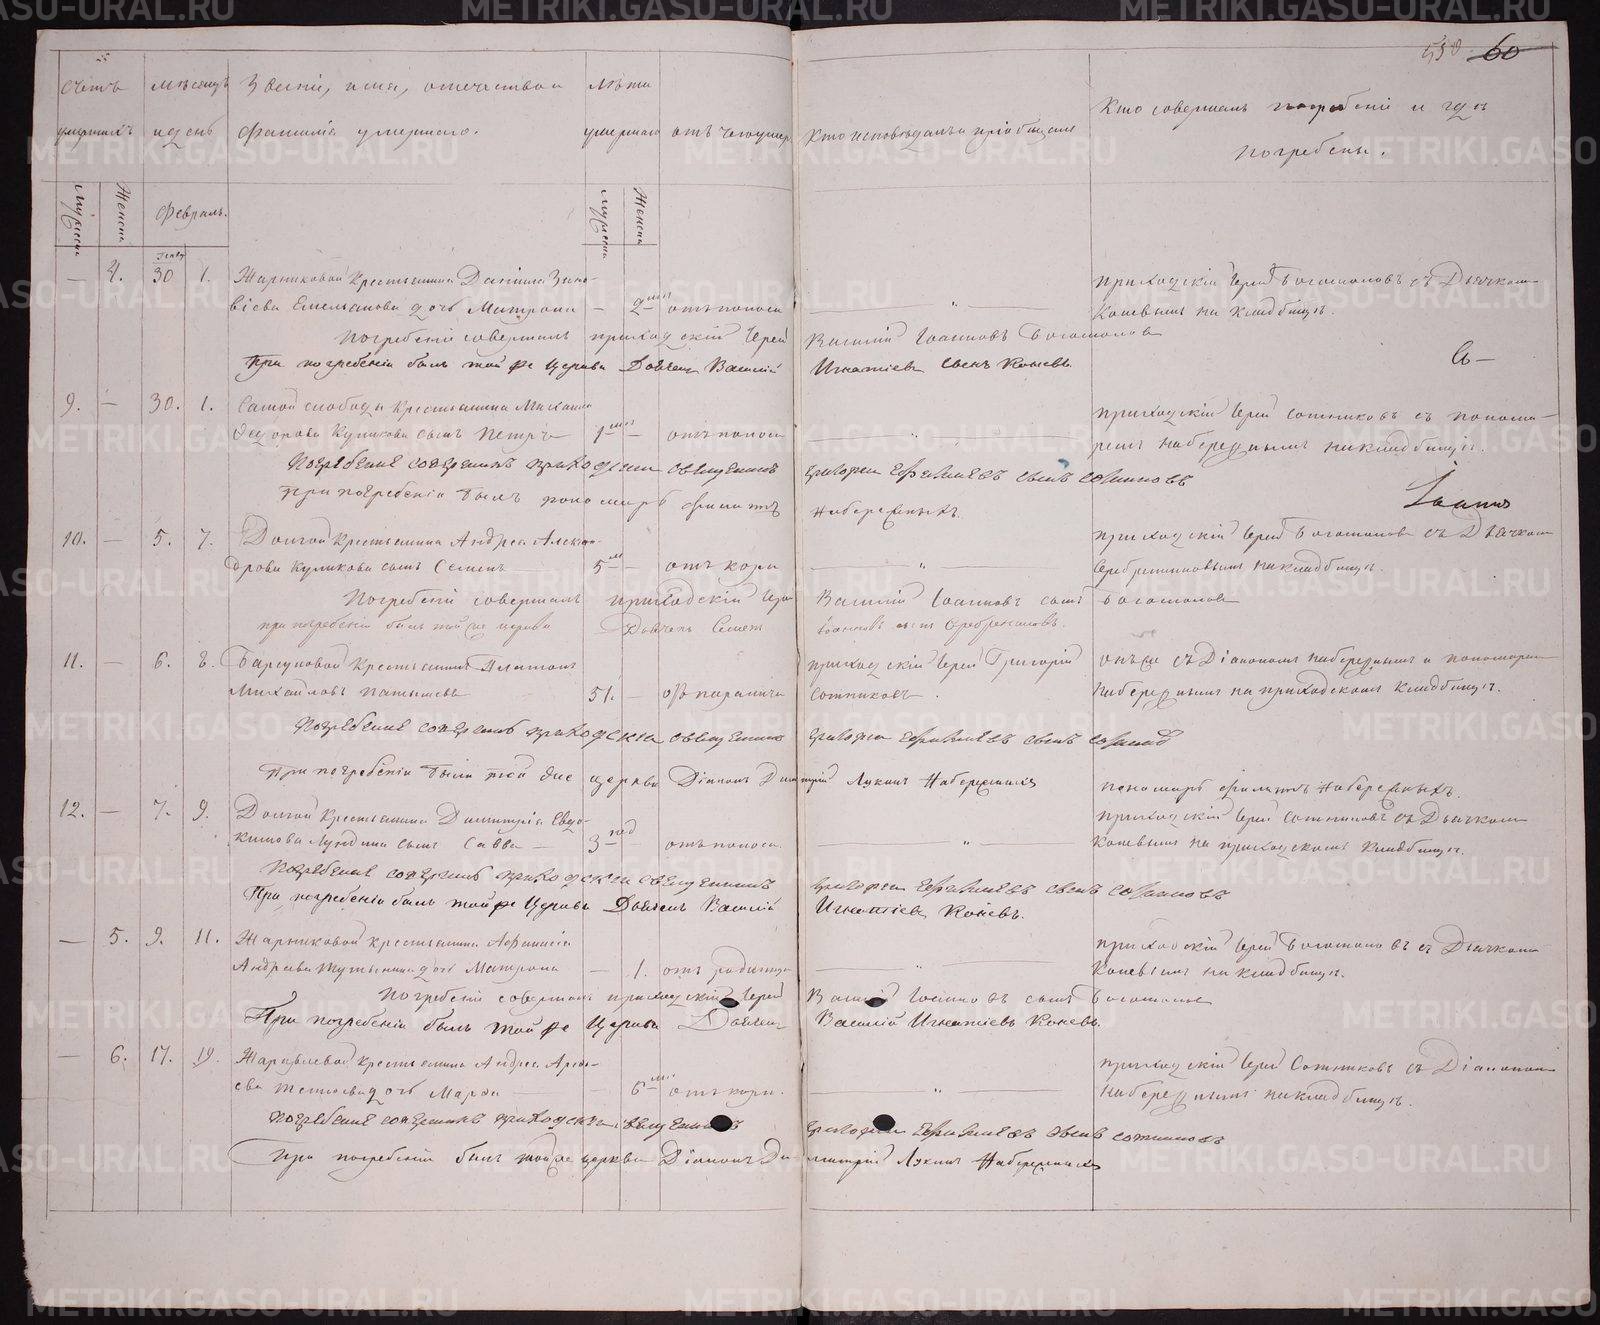 550 60
Счетъ умершихъ
Мѣсяцъ и день
Званіе, имя, отечество и фамилія умершаго.
Лѣта умершаго
отъ чего умеръ
Кто исповѣдалъ и пріобщалъ
Кто совершалъ погребеніе и гдѣ погребены.
Мужеска Женска Февраль. Мужеска Женска
— 4. 30 1. Жарниковой крестьянина Даніила Зино-
віева Емельянова дочь Матрона — 2 отъ поноса
приходскій Іерей Богомоловъ съ Дьячкомъ
Коневымъ на кладбищѣ.
Погребеніе совершалъ приходскій Іерей Василій Іоанновъ Богомоловъ
При погребеніи былъ той же Церкви Дьячекъ Василій Игнатіевъ сынъ Коневъ.
9. — 30. 1. Самой слободы крестьянина Михаила
Ѳедорова Куликова сынъ Петръ 1 — отъ поноса
приходскій Іерей Сотниковъ съ понома-
ремъ Набережнымъ на кладбищѣ.
Погребение совершилъ приходскій священникъ Григорій сынъ Сотниковъ
При погребеніи былъ пономарь Филиппъ Набережныхъ.
10. — 5. 7. Долгой крестьянина Андрея Алексан-
дрова Куликова сынъ Семенъ 5 — отъ кори
приходскій Іерей Богомоловъ съ Дьячкомъ
Серебренниковымъ на кладбищѣ.
Погребеніе совершалъ приходскій Іерей Василій Іоанновъ сынъ Богомоловъ
при погребеніи былъ той же церкви Дьячекъ Семенъ сынъ Серебренниковъ.
11. — 6. 8. Барсуковой крестьянинъ Платонъ
Михайловъ 51. — отъ паралича
приходскій Іерей Григорій
Сотниковъ.
онъ же съ Діакономъ Набережнымъ и пономаремъ
Набережнымъ на приходскомъ кладбищѣ.
Погребение совершилъ приходскій священникъ Григорій сынъ Сотниковъ
При погребеніи были той же церкви Діаконъ Димитрій Лукинъ Набережныхъ
пономарь Филиппъ Набережныхъ.
12. — 7. 9. Долгой крестьянина Димитрія Евдо-
кимова сынъ Савва — 3 нед — отъ поноса
приходскій Іерей Сотниковъ съ Дьячкомъ
Коневымъ на приходскомъ кладбищѣ.
Погребение совершилъ приходскій священникъ Григорій сынъ Сотниковъ
При погребеніи былъ той же Церкви Дьячекъ Василій Игнатіевъ Коневъ.
— 5. 9. 11. Жарниковой крестьянина Аѳанасія
Андреева дочь Матрона — 1. отъ родимца
приходскій Іерей Богомоловъ съ Дьячкомъ
Коневымъ на кладбищѣ.
Погребеніе совершалъ приходскій Іерей Василій Іоанновъ сынъ Богомоловъ
При погребеніи былъ той же Церкви Дьячекъ Василій Игнатіевъ Коневъ.
— 6. 17. 19. Журавлевой крестьянина Андрея
дочь Марѳа — 6 отъ кори.
приходскій Іерей Сотниковъ съ Діакономъ
Набережнымъ на кладбищѣ.
Погребение совершилъ приходскій священникъ Григорій сынъ Сотниковъ
При погребеніи былъ той же церкви Діаконъ Димитрій Лукинъ Набережныхъ
METRIKI.GASO-URAL.RU